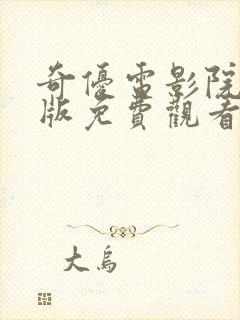 奇優電影院
版免費觀看
大烏